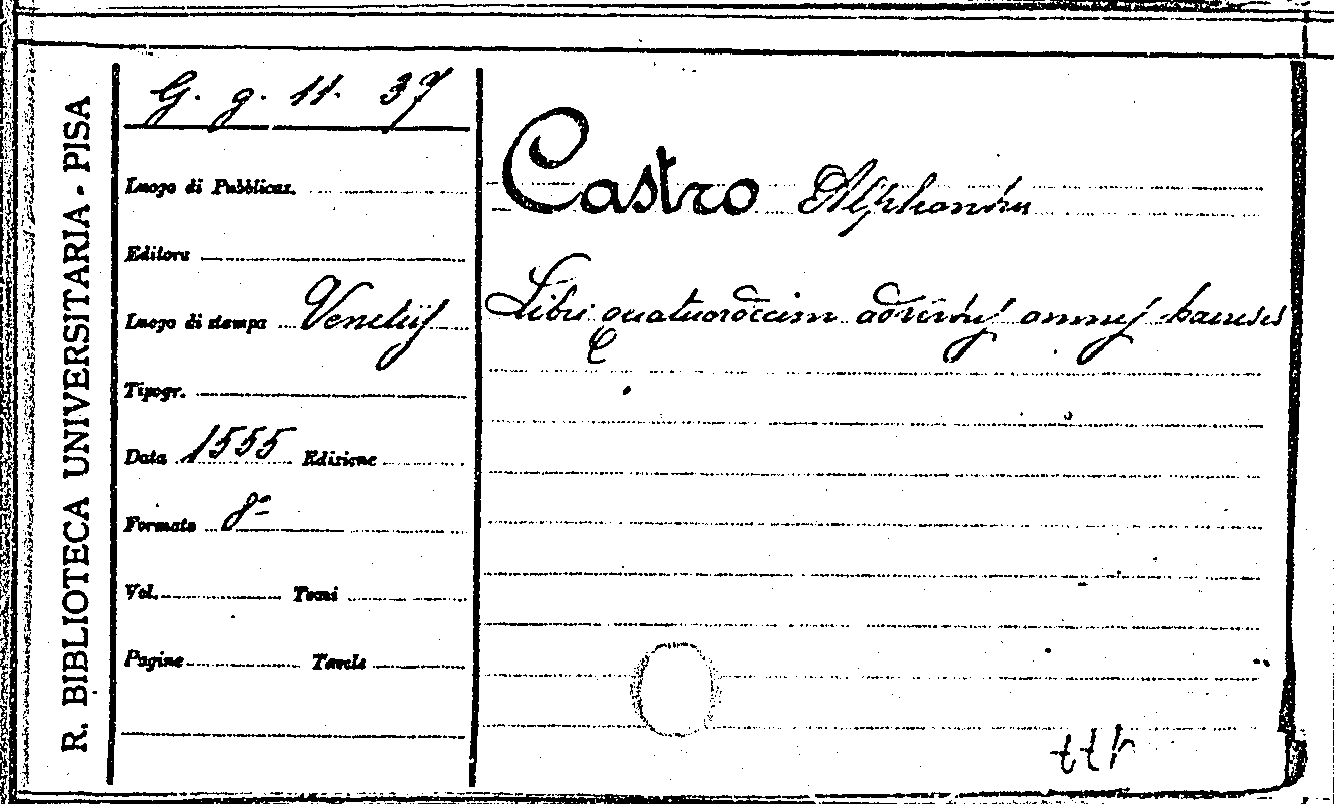 R. BIBLIOTECA UNIVERSITARIA - PISA
G. g. 11. 37
Luogo di Pubblicaz.
Editore
Luogo di stampa Venetiis
Tipogr.
Data 1555 Edizione
Formato 8º
Vol. Tomi
Pagine Tavole
Castro Alphonsus
Libri quatuordecim adversus omnes haereses